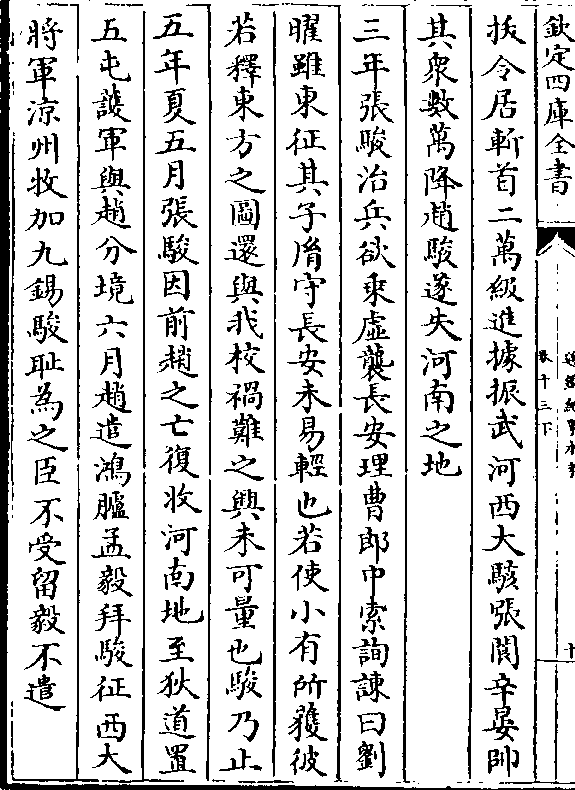 欽定四庫全書
卷十三下
拔令居斬首二萬級進據振武河西大駭張閬辛晏帥
其衆數萬降趙駿遂失河南之地
三年張駿治兵欲乘虛襲長安理曹郎中索詢諫曰劉
曜雖東征其子胤守長安未易輕也若使小有所獲彼
若釋東方之圖還與我校禍難之興未可量也駿乃止
五年夏五月張駿因前趙之亡復收河南地至狄道置
五屯護軍與趙分境六月趙遣鴻臚孟毅拜駿征西大
將軍涼州牧加九錫駿耻為之臣不受留毅不遣